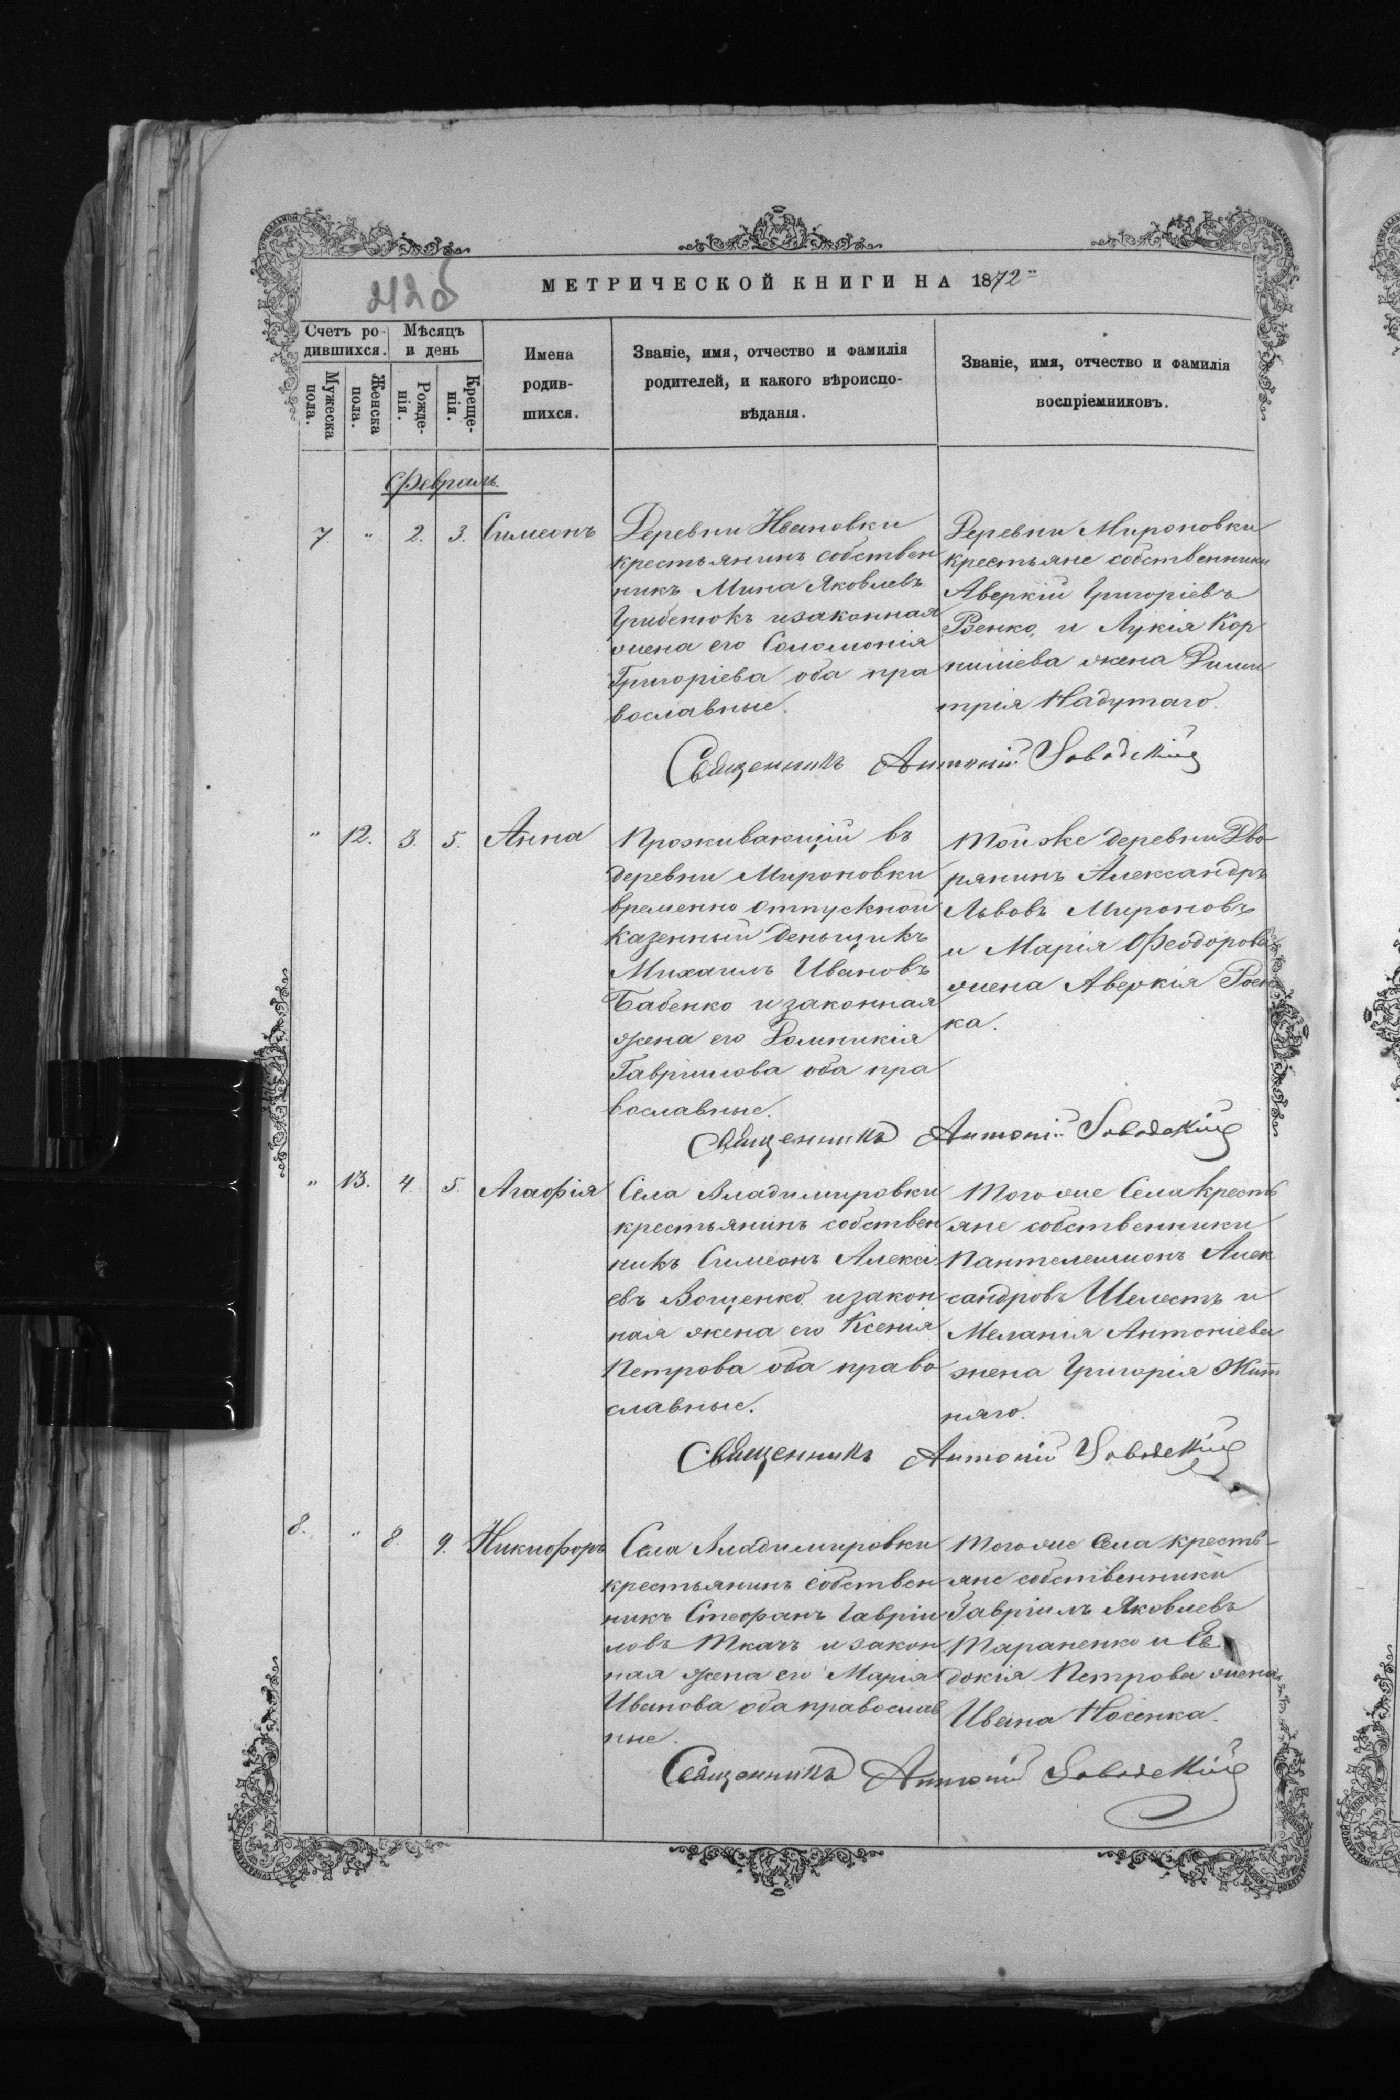 212б
МЕТРИЧЕСКОЙ КНИГИ НА 1872
Счетъ ро-
дившихся.
Мѣсяцъ
и день
Мужеска
пола.
Женска
пола.
Рожде-
нія.
Креще-
нія.
Имена
родив-
шихся.
Званіе, имя, отчество и фамилія
родителей, и какого вѣроиспо-
вѣданія.
Званіе, имя, отчество и фамилія
воспріемниковъ.
Февраль.
7. " 2. 3. Симеонъ
Деревни Ивановки
крестьянинъ собствен
никъ Мина Яковлевъ
Грибенюкъ и законная
жена его Соломонія
Григоріева оба пра
вославные.
Деревни Мироновки
крестьяне собственники
Аверкій Григоріевъ
и Лукія Кор
ниліева жена Дими
трія Надутаго.
Священникъ Антоній
" 12. 3. 5. Анна
Проживающій въ
деревни Мироновки
временно отпускной
казенный деньщикъ
Михаилъ Ивановъ
Бабенко и законная
жена его Домникія
Гавріилова оба пра
вославные.
Той же деревни Дво
рянинъ Александръ
Львовъ Мироновъ
и Марія Феодорова
жена Аверкія
ка.
Священникъ Антоній
" 13. 4. 5. Агафія
Села Владимировки
крестьянинъ собствен
никъ Симеонъ Алексі
евъ Вощенко и закон
ная жена его Ксенія
Петрова оба право
славные.
Того же Села кресть
яне собственники
Пантелеимонъ Алек
сандровъ Шелестъ и
Меланія Антоніева
жена Григорія Жит
няго.
Священникъ Антоній
8. " 8. 9. Никифоръ
Села Владимировки
крестьянинъ собствен
никъ Стефанъ Гавріи
ловъ Ткачъ и закон
ная жена его Марія
Иванова оба православ
ные.
Того же Села кресть-
яне собственники
Гавріилъ Яковлевъ
Тараненко и Ев
докія Петрова жена
Ивана Носенка.
Священникъ Антоній